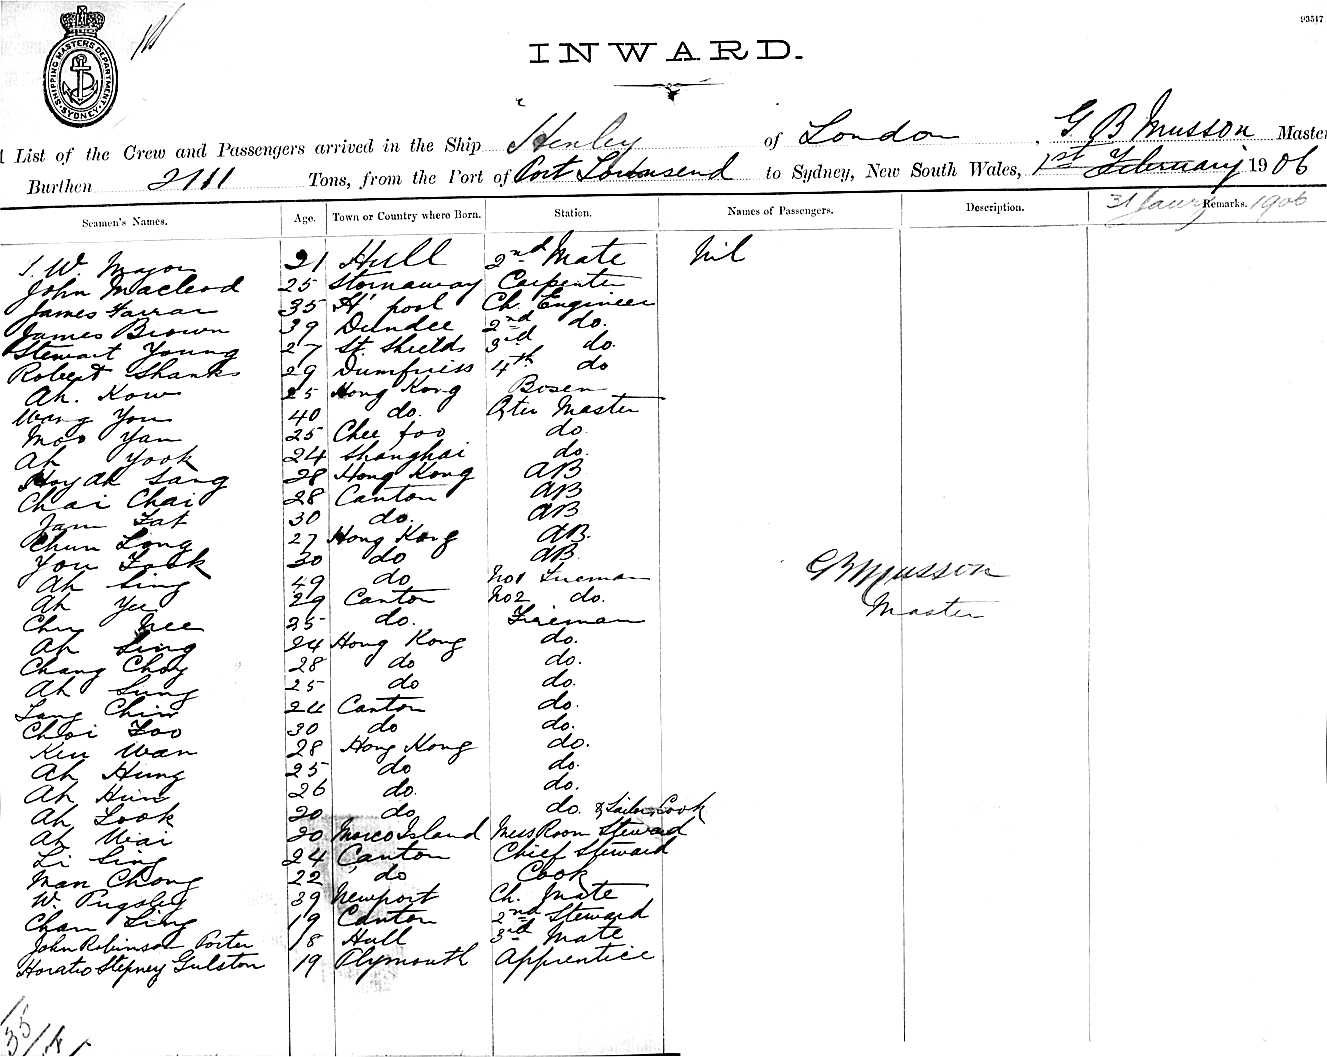 93517
SHIPPING MASTERS DEPARTMENT SYDNEY
INWARD.
List of the Crew and Passengers arrived in the Ship Henley of London, G. B. Musson Master
Burthen 2111 Tons, from the Port of Port Townsend to Sydney, New South Wales, 1st February 1906
31 Jany 1906
Seamen's Names. Age. Town or Country where Born. Station. Names of Passengers. Description. Remarks.
W. Major 21 Hull 2nd Mate Nil
John Macleod 25 Stornaway Carpenter
James Farrar 35 H'pool Ch. Engineer
James Brown 39 Dundee 2nd do.
Stewart Young 27 St. Shields 3rd do.
Robert Shanks 29 Dumfriess 4th do
Ah. Kow 25 Hong Kong Bosen
Wong You 40 do. Qter Master
Moo Yam 25 Chee foo do.
Ah Yook 24 Shanghai do.
Hoy Ah Sang 28 Hong Kong AB
Chai Chai 28 Canton AB
Jam Fat 30 do. AB
Chun Long 27 Hong Kong AB.
You Fook 30 do AB
Ah Sing 49 do No1 Fireman
Ah Yu 29 Canton No2 do.
Chu Nee 35 do. Fireman
Ah Sing 24 Hong Kong do.
Chang Choy 28 do do.
Ah Sung 25 do do.
Lang Chin 24 Canton do.
Choi Foo 30 do do.
Keu Wan 28 Hong Kong do.
Ah Hung 25 do do.
Ah Hun 26 do. do.
Ah Look 20 do do. & Sailors Cook
Ah Wai 20 Morco Island Mess Room Steward
Li Sing 24 Canton Chief Steward
Man Chong 22 do Cook
W. Pugsley 39 Newport Ch. Mate
Chan Ling 19 Canton 2nd Steward
John Robinson Porter 18 Hull 3rd Mate
Horatio Stepney Gulston 19 Plymouth Apprentice
G B Musson
Master
35